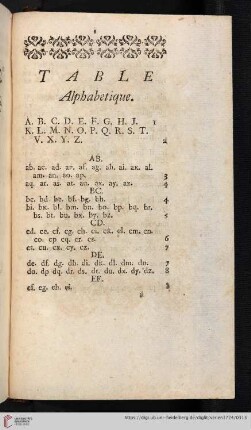 TABLE
Alphabetique.
A. B. C. D. E. F. G. H. J. 1
K. L. M. N. O. P. Q. R. S. T.
V. X. Y. Z. 2
AB.
ab. ac. ad. ae. af. ag. ah. ai. ak. al.
am. an. ao. ap. 3
aq. ar. as. at. au. ax. ay. az. 4
BC.
bc. bd. be. bf. bg. bh. 4
bi. bk. bl. bm. bn. bo. bp. bq. br.
bs. bt. bu. bx. by. bz. 5
CD.
cd. ce. cf. cg. ch. ci. ck. cl. cm. cn.
co. cp. cq. cr. cs. 6
ct. cu. cx. cy. cz. 7
DE.
de. df. dg. dh. di. dk. dl. dm. dn. 7
do. dp. dq. dr. ds. dt. du. dx. dy. dz. 8
EF.
ef. eg. eh. ei. 8